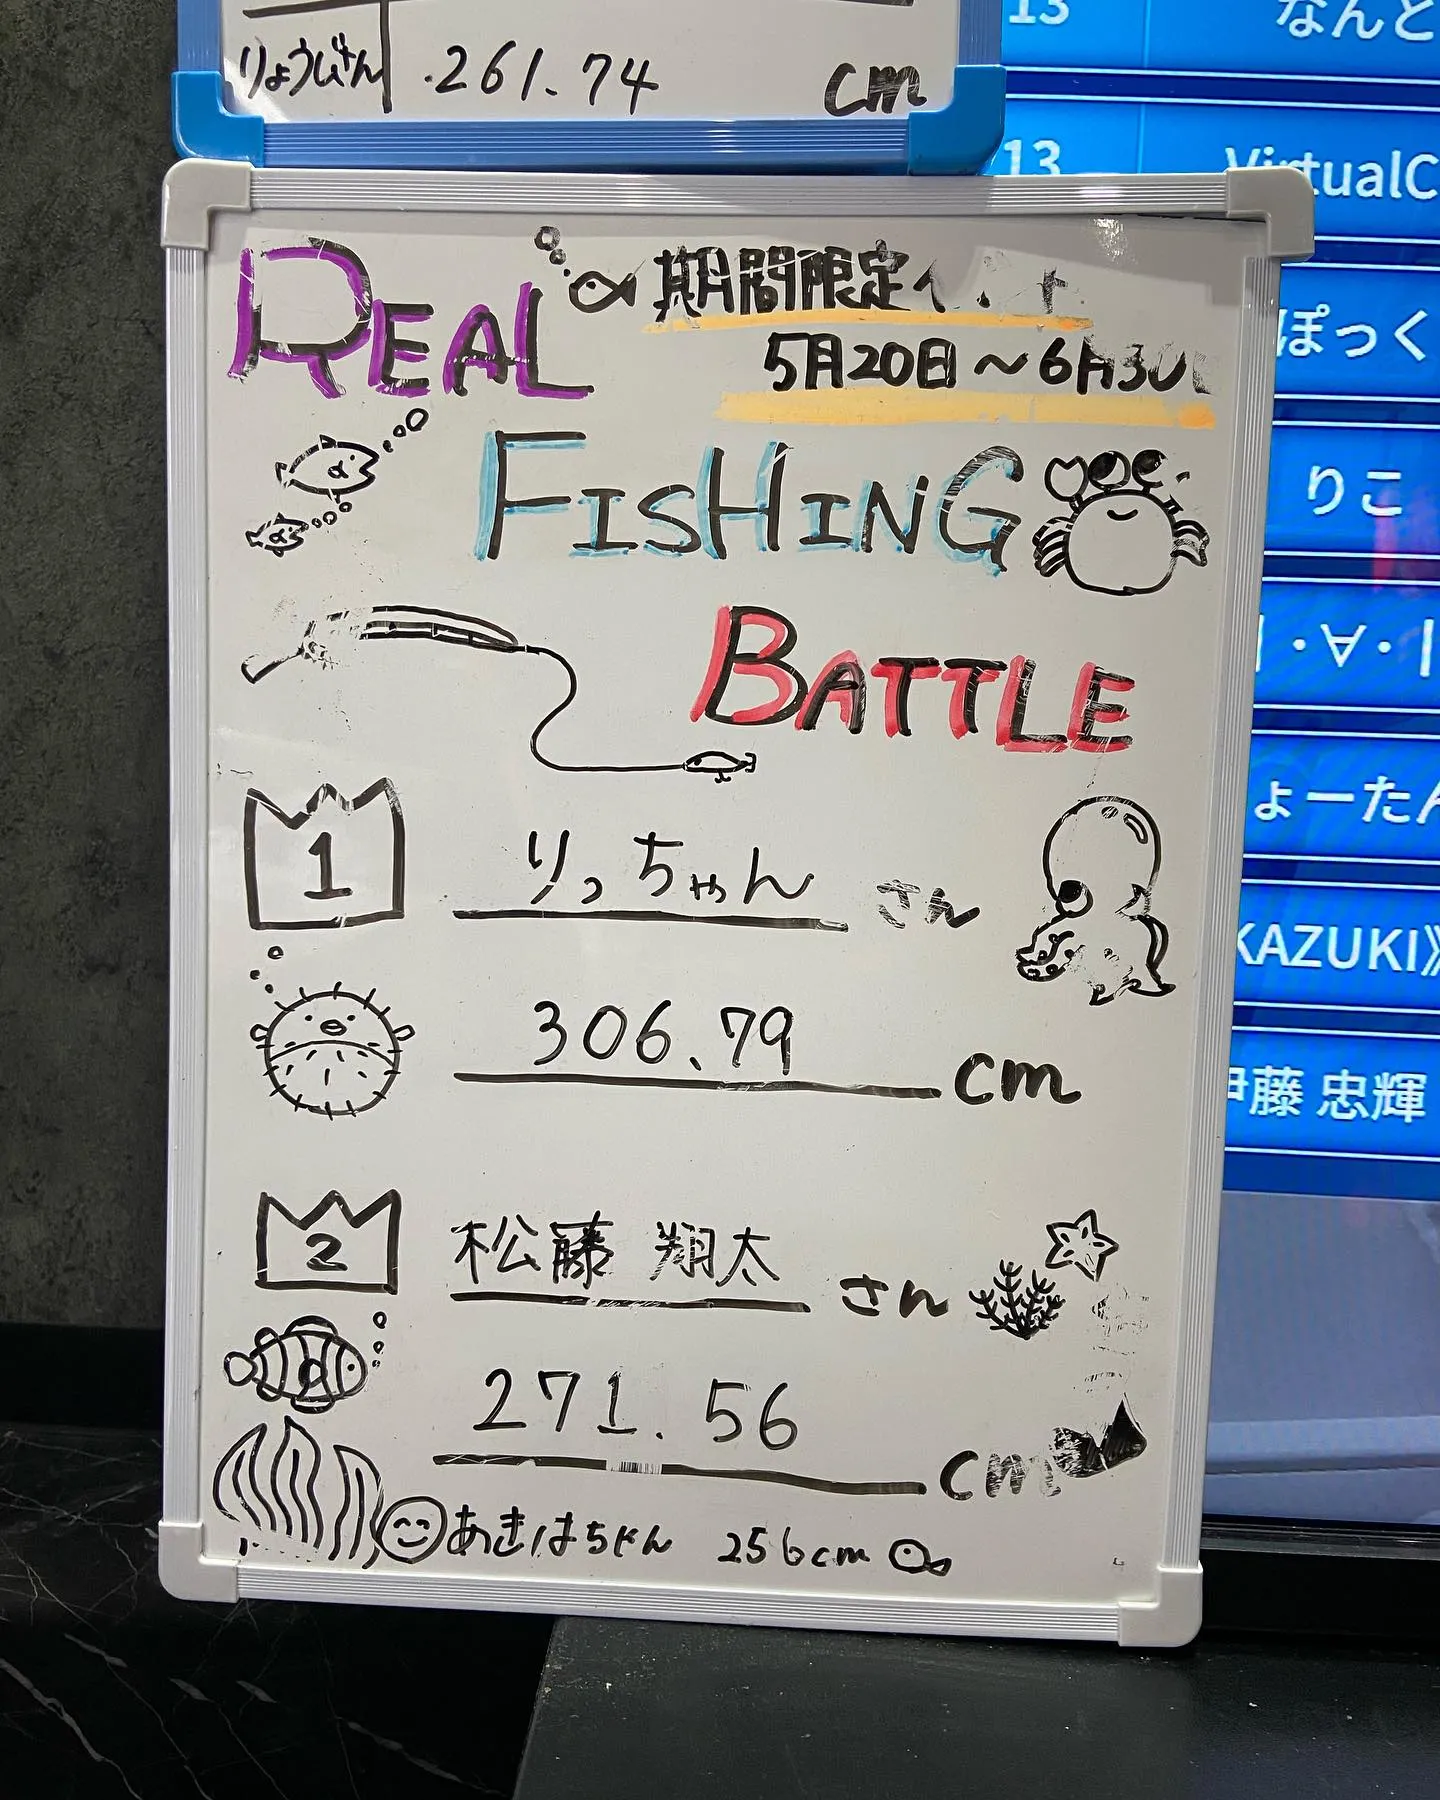 りょうげん .261.74 cm
REAL
期間限定
5月20日～6月30
FISHING
BATTLE
1 りっちゃん さん
306.79 cm
2 松藤 翔太 さん
271.56 cm
あきはちゃん 256cm
13 なんと
13 VirtualC
ぽっく
りこ
|・∀・|
ょーたん
KAZUKI》
伊藤 忠輝